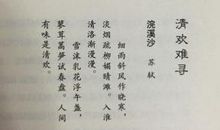 清欢难寻
浣溪沙
苏轼
细雨斜风作晓寒，
淡烟疏柳媚晴滩。入淮
清洛渐漫漫。
雪沫乳花浮午盏，
蓼茸蒿笋试春盘。人间
有味是清欢。